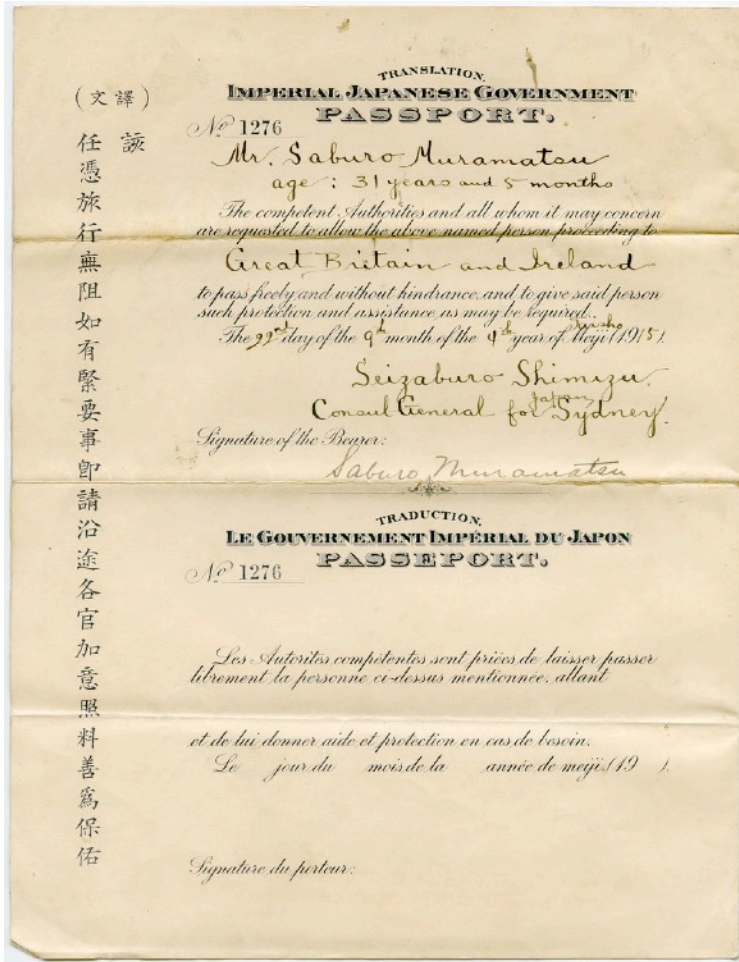 (譯文)
該
任憑旅行無阻如有緊要事卽請沿途各官加意照料善爲保佑
TRANSLATION.
IMPERIAL JAPANESE GOVERNMENT
PASSPORT.
No 1276
Mr. Saburo Muramatsu
age : 31 years and 5 months
The competent Authorities and all whom it may concern
are requested to allow the above named person proceeding to
Great Britain and Ireland
to pass freely and without hindrance, and to give said person
such protection and assistance as may be required.
Taisho
The 22nd day of the 9th month of the 4th year of Meiji (1915).
Seizaburo Shimizu,
Japan
Consul General for Sydney.
Signature of the Bearer:
Saburo Muramatsu
TRADUCTION.
LE GOUVERNEMENT IMPÉRIAL DU JAPON
PASSEPORT.
No 1276
Les Autorités compétentes sont priées de laisser passer
librement la personne ci-dessus mentionnée, allant
et de lui donner aide et protection en cas de besoin.
Le jour du mois de la année de meiji (19 ).
Signature du porteur: